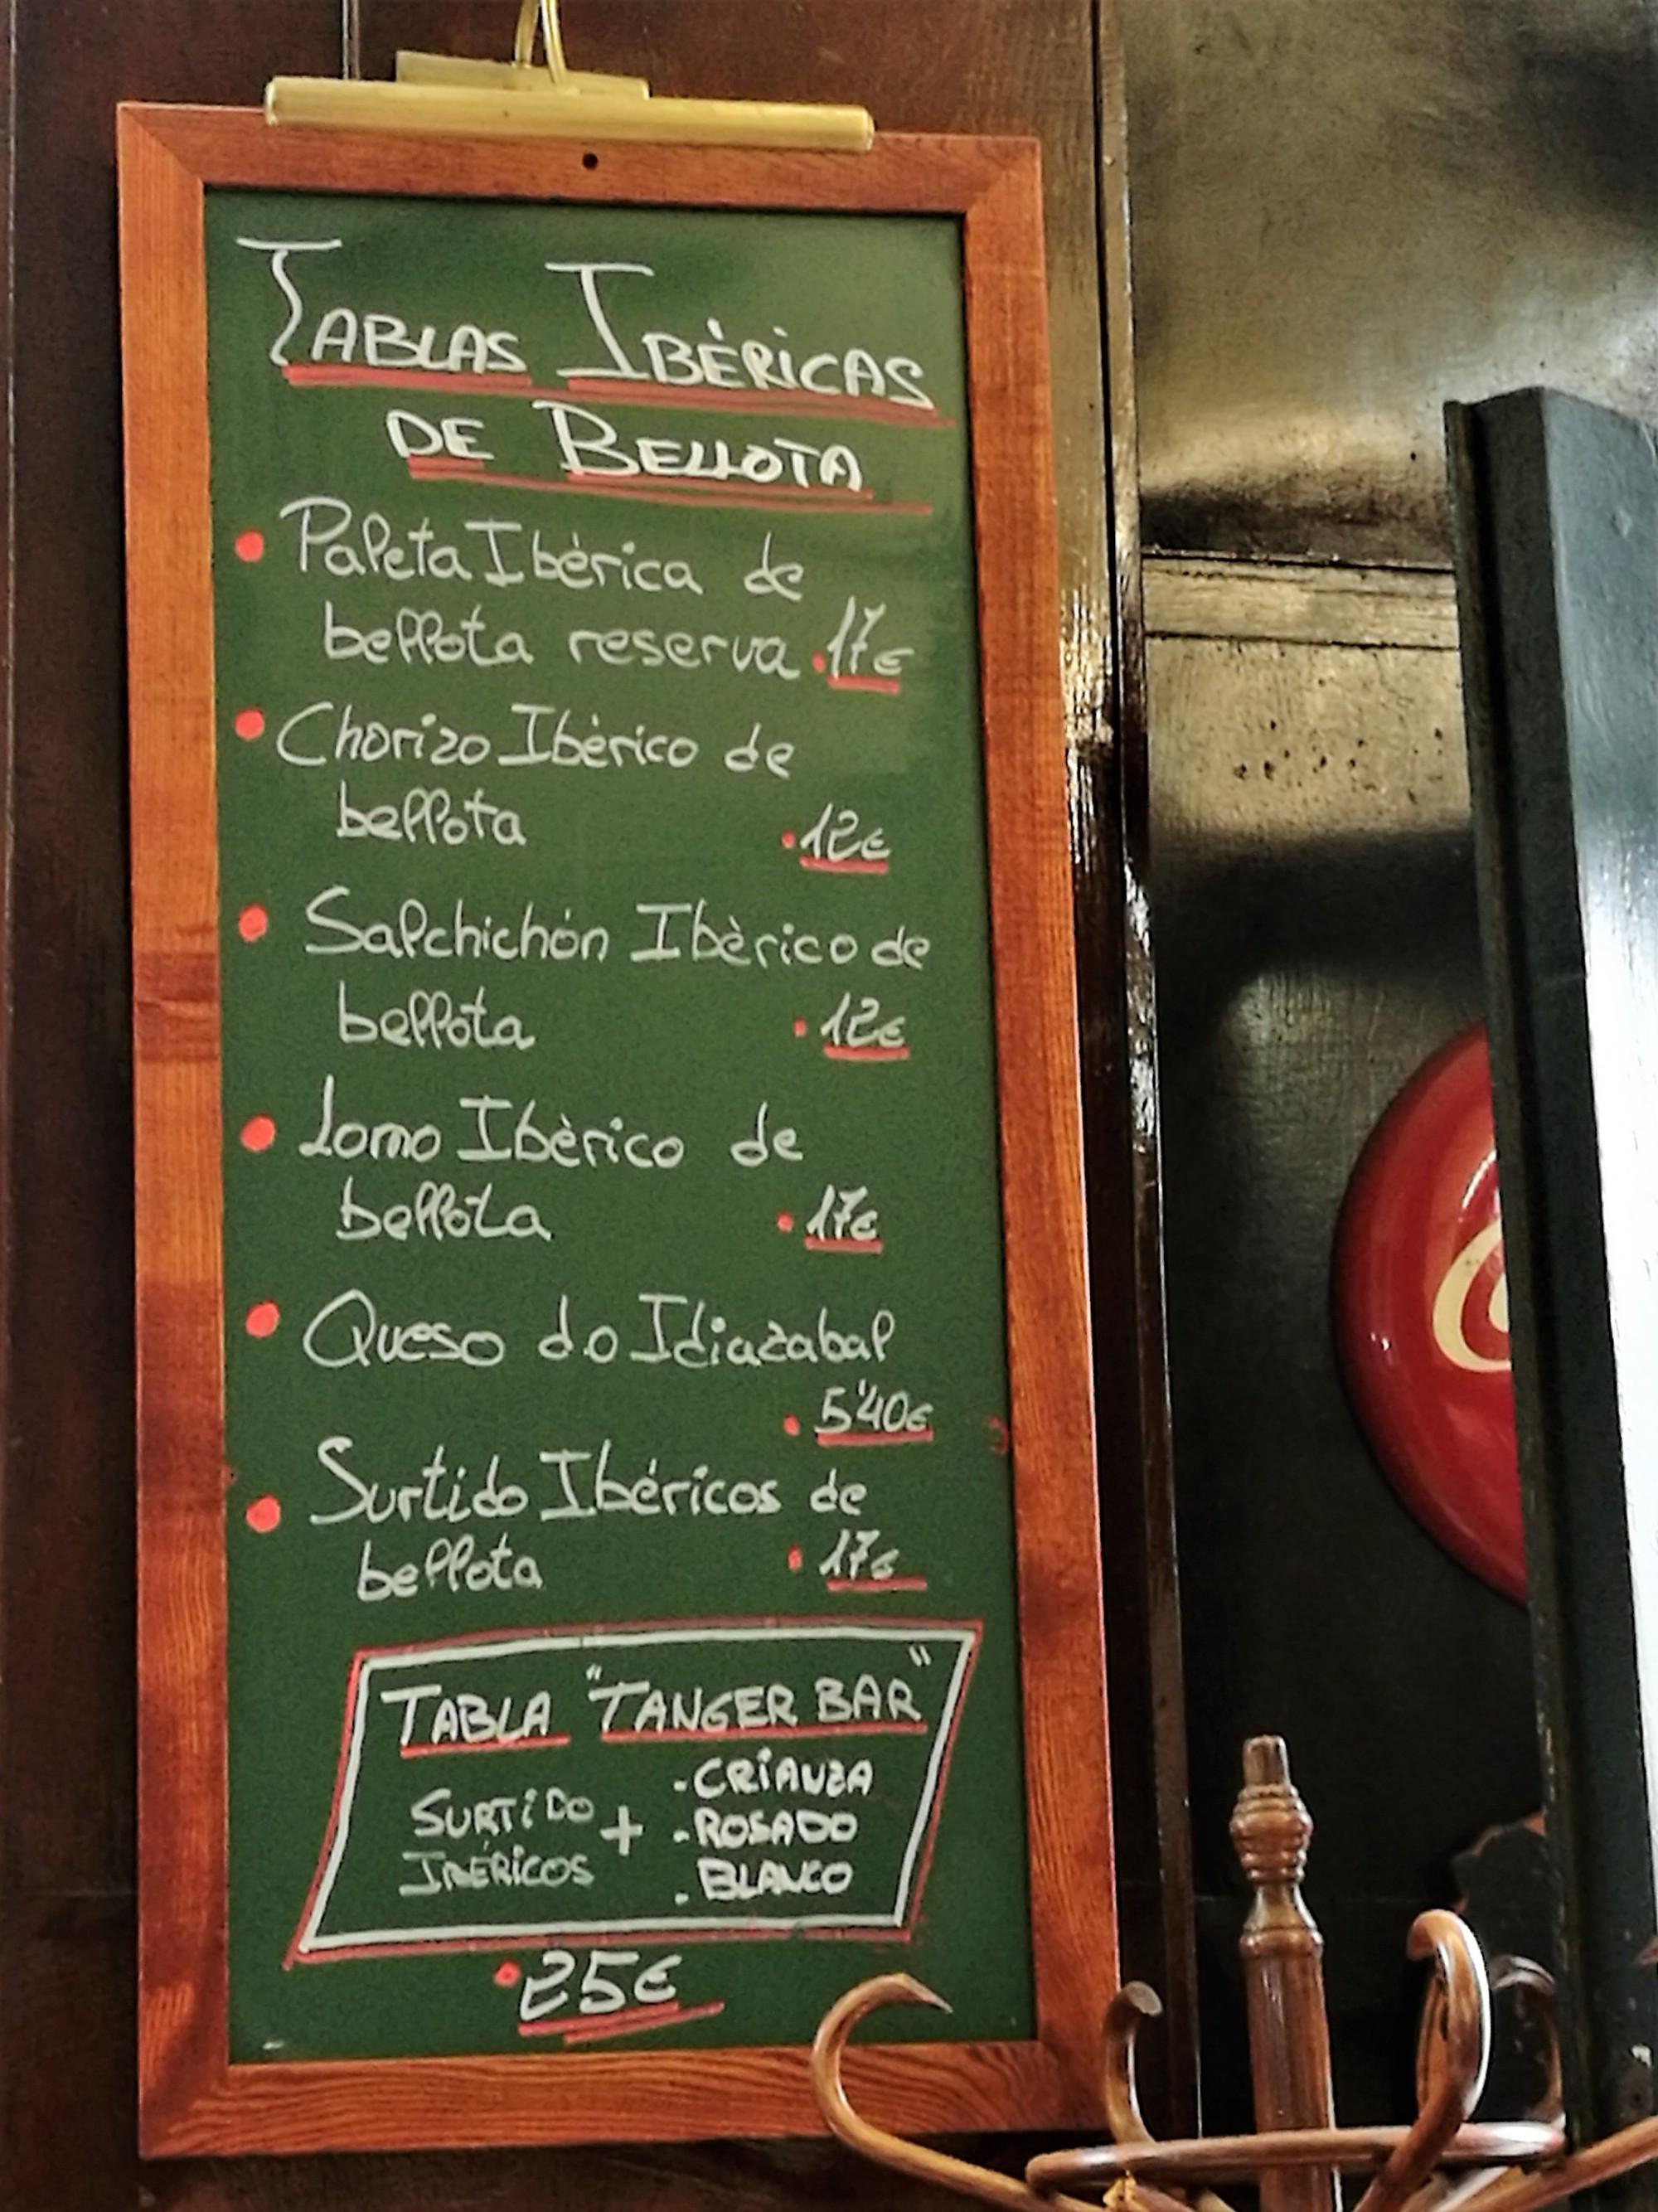 TABLAS IBÉRICAS
DE BELLOTA
Paleta Ibérica de
bellota reserva .17€
Chorizo Ibérico de
bellota .12€
Salchichón Ibèrico de
bellota .12€
Lomo Ibèrico de
bellota .17€
Queso d.o Idiazabal
.5'40€
Surtido Ibéricos de
bellota .17€
TABLA "TANGER BAR"
SURTIDO + -CRIANZA
IBÉRICOS -ROSADO
. BLANCO
.25€